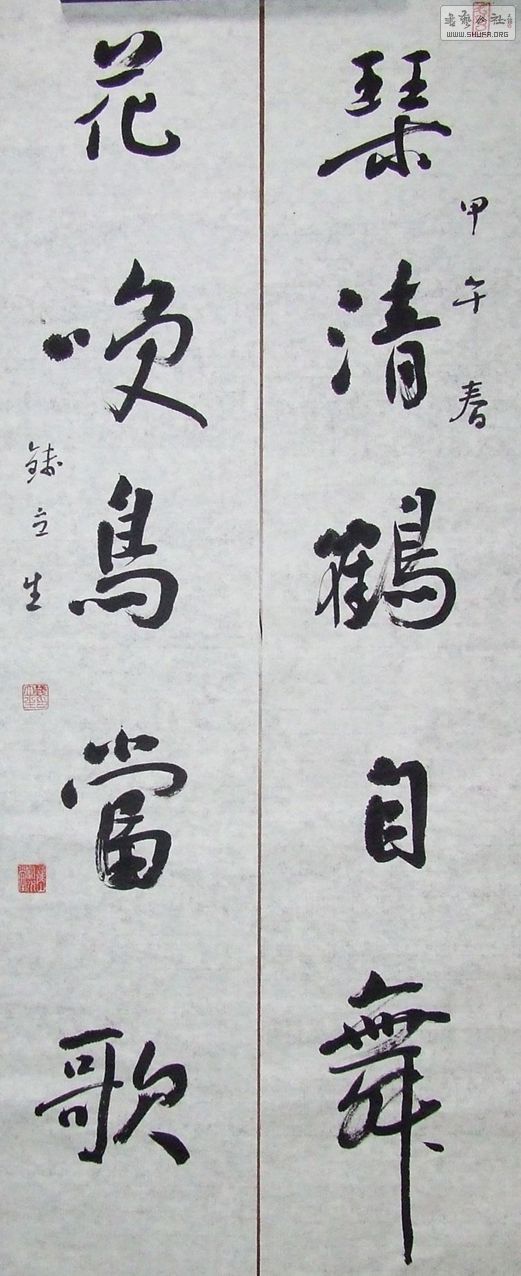 琴清鶴自舞
甲午春
花喚鳥當歌
立生
書藝公社
WWW.SHUFA.ORG